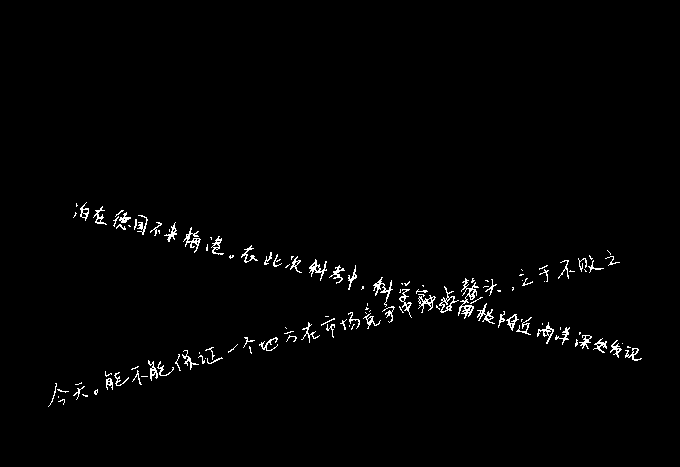 泊在德国不来梅港。在此次科考中，科学家在南极附近海洋深处发现
今天。能不能保证一个地方在市场竞争中独占鳌头，立于不败之